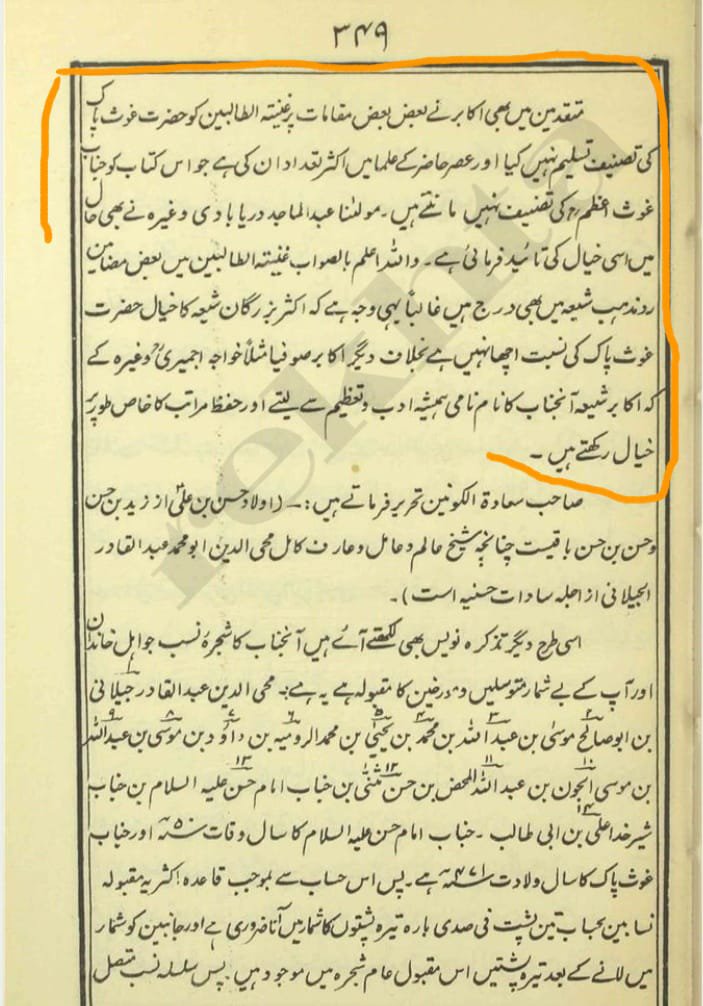 ۳۴۹
متقدمین میں بھی اکابر نے بعض بعض مقامات پر غنیتہ الطالبین کو حضرت غوث پاک
کی تصنیف تسلیم نہیں کیا اور عصر حاضر کے علما میں اکثر تعداد ان کی ہے جو اس کتاب کو جناب
غوث اعظمؒ کی تصنیف نہیں مانتے ہیں۔ مولٰنا عبد الماجد دریابادی وغیرہ نے بھی حال
میں اسی خیال کی تائید فرمائی ہے۔ واللہ اعلم بالصواب غنیتہ الطالبین میں بعض مضامین
رد مذہب شیعہ میں بھی درج ہیں غالباً یہی وجہ ہے کہ اکثر بزرگان شیعہ کا خیال حضرت
غوث پاک کی نسبت اچھا نہیں ہے بخلاف دیگر اکابر صوفیا مثلاً خواجہ اجمیریؒ وغیرہ کے
کہ اکابر شیعہ آنجناب کا نام نامی ہمیشہ ادب و تعظیم سے لیتے اور حفظ مراتب کا خاص طور پر
خیال رکھتے ہیں۔
صاحب سعادۃ الکونین تحریر فرماتے ہیں:۔ (اولاد حسن بن علیؓ از زید بن حسن
وحسن بن حسن باقیست چنانچہ شیخ عالم و عامل و عارف کامل محی الدین ابو محمد عبد القادر
الجیلانی از اجلہ سادات حسنیہ است)۔
اسی طرح دیگر تذکرہ نویس بھی لکھتے آئے ہیں آنجناب کا شجرۂ نسب جو اہل خاندان
اور آپ کے بے شمار متوسلین و مورخین کا مقبولہ ہے یہ ہے:۔ محی الدین عبد القادر جیلانی ۱
بن ابو صالح موسٰی ۲ بن عبد اللہ ۳ بن محمد ۴ بن یحیٰی ۵ بن محمد الرومیہ ۶ بن داؤد ۷ بن موسٰی ۸ بن عبد اللہ ۹
بن موسی الجون ۱۰ بن عبد اللہ المحض ۱۱ بن حسن مثنٰی ۱۲ بن جناب امام حسن علیہ السلام ۱۳ بن جناب
شیر خدا علی ۱۴ بن ابی طالب۔ جناب امام حسن علیہ السلام کا سال وفات ۵۰ھ اور جناب
غوث پاک کا سال ولادت ۴۷۱ھ ہے۔ پس اس حساب سے بموجب قاعدہ اکثریہ مقبولہ
نسابین بحساب تین پشت فی صدی بارہ تیرہ پشتوں کا شمار میں آنا ضروری ہے اور جانبین کو شمار
میں لانے کے بعد تیرہ پشتیں اس مقبول عام شجرہ میں موجود ہیں۔ پس سلسلہ نسب متصل
rekhta